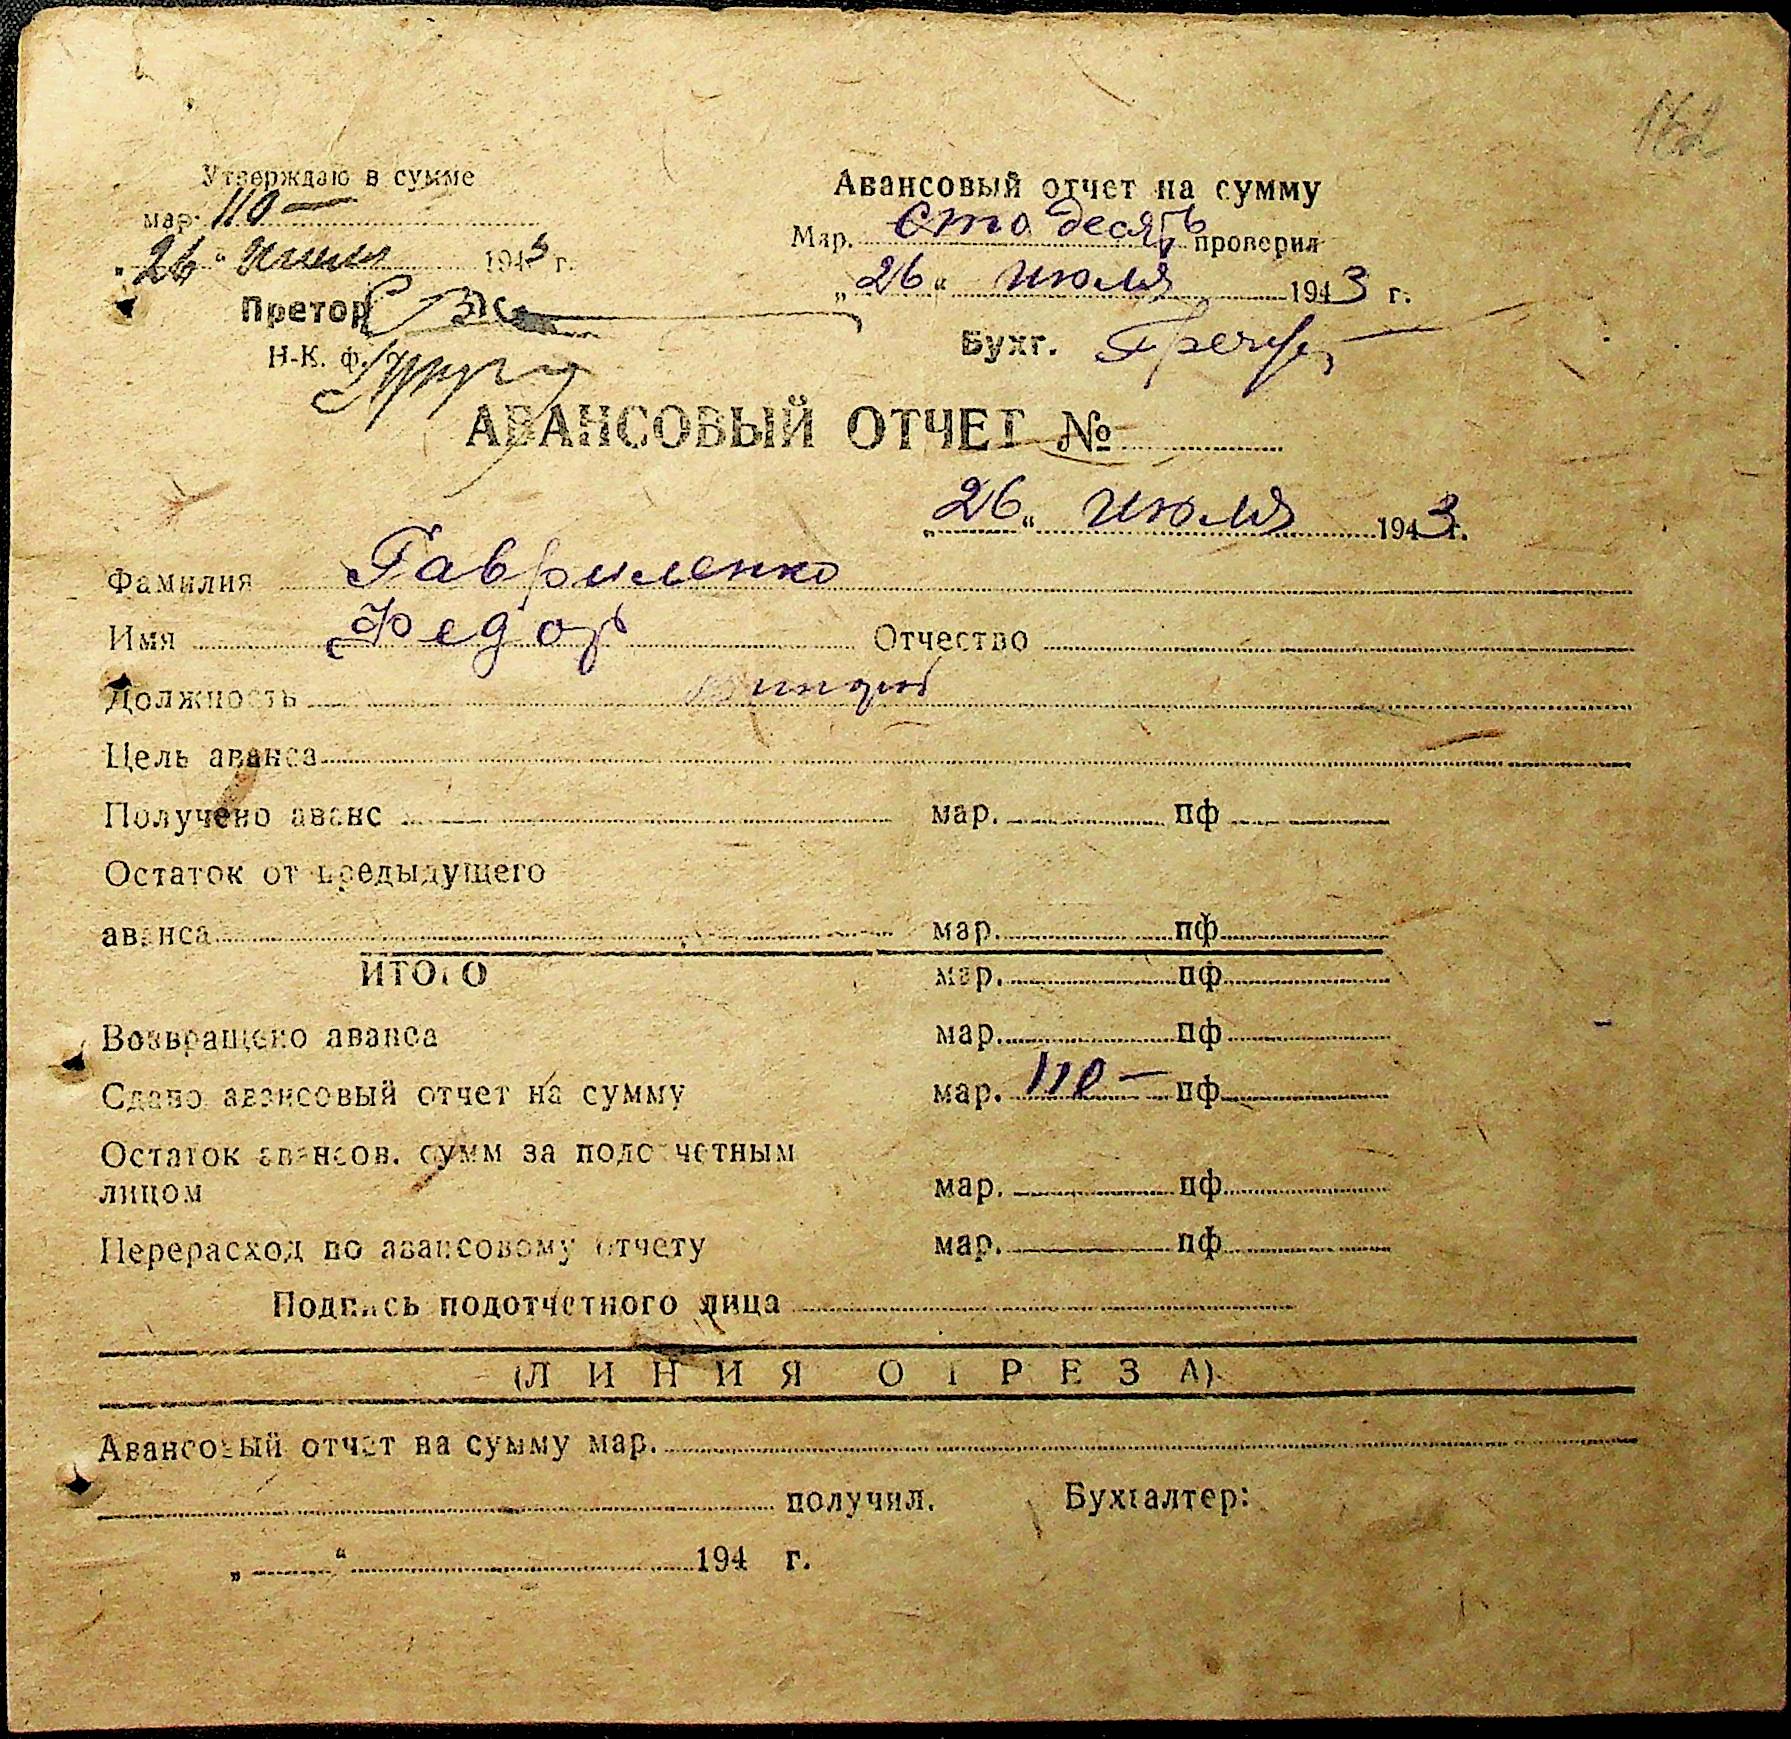 162
Утверждаю в сумме
мар. 110 —
„26“ июля 1943 г.
Претор
Н-К. ф.
Авансовый отчет на сумму
Мар. сто десять проверил
„26“ июля 1943 г.
Бухг.
АВАНСОВЫЙ ОТЧЕТ №
„26“ июля 1943 г.
Фамилия Гавриленко
Имя Федор Отчество
Должность
Цель аванса
Получено аванс мар. пф
Остаток от предыдущего
аванса мар. пф
ИТОГО мар. пф
Возвращено аванса мар. пф
Сдано авансовый отчет на сумму мар. 110 — пф
Остаток авансов. сумм за подотчетным
лицом мар. пф
Перерасход по авансовому отчету мар. пф
Подпись подотчетного лица
(ЛИНИЯ ОТРЕЗА)
Авансовый отчет на сумму мар.
получил. Бухгалтер:
„ “ 194 г.